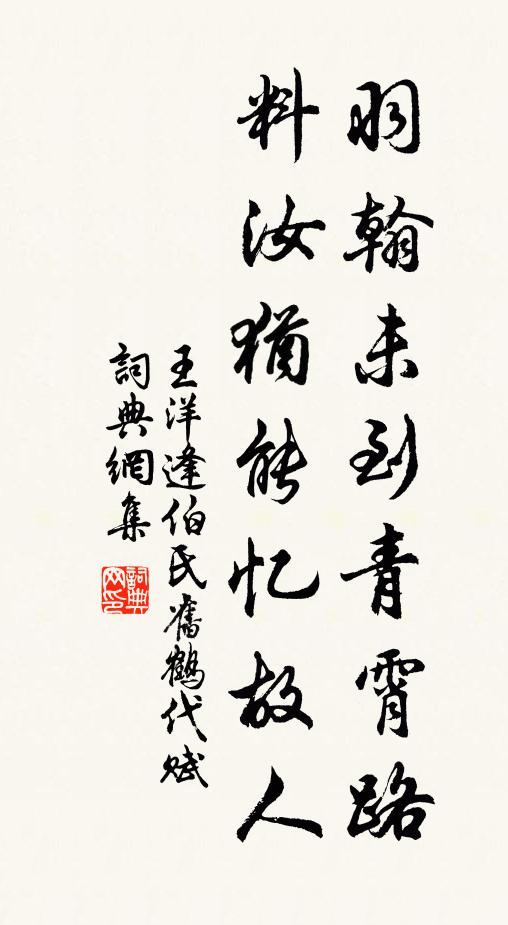 羽翰未到青霄路
料汝猶能忆故人
王洋逢伯氏舊鶴代赋
詞典網集
詞典网印